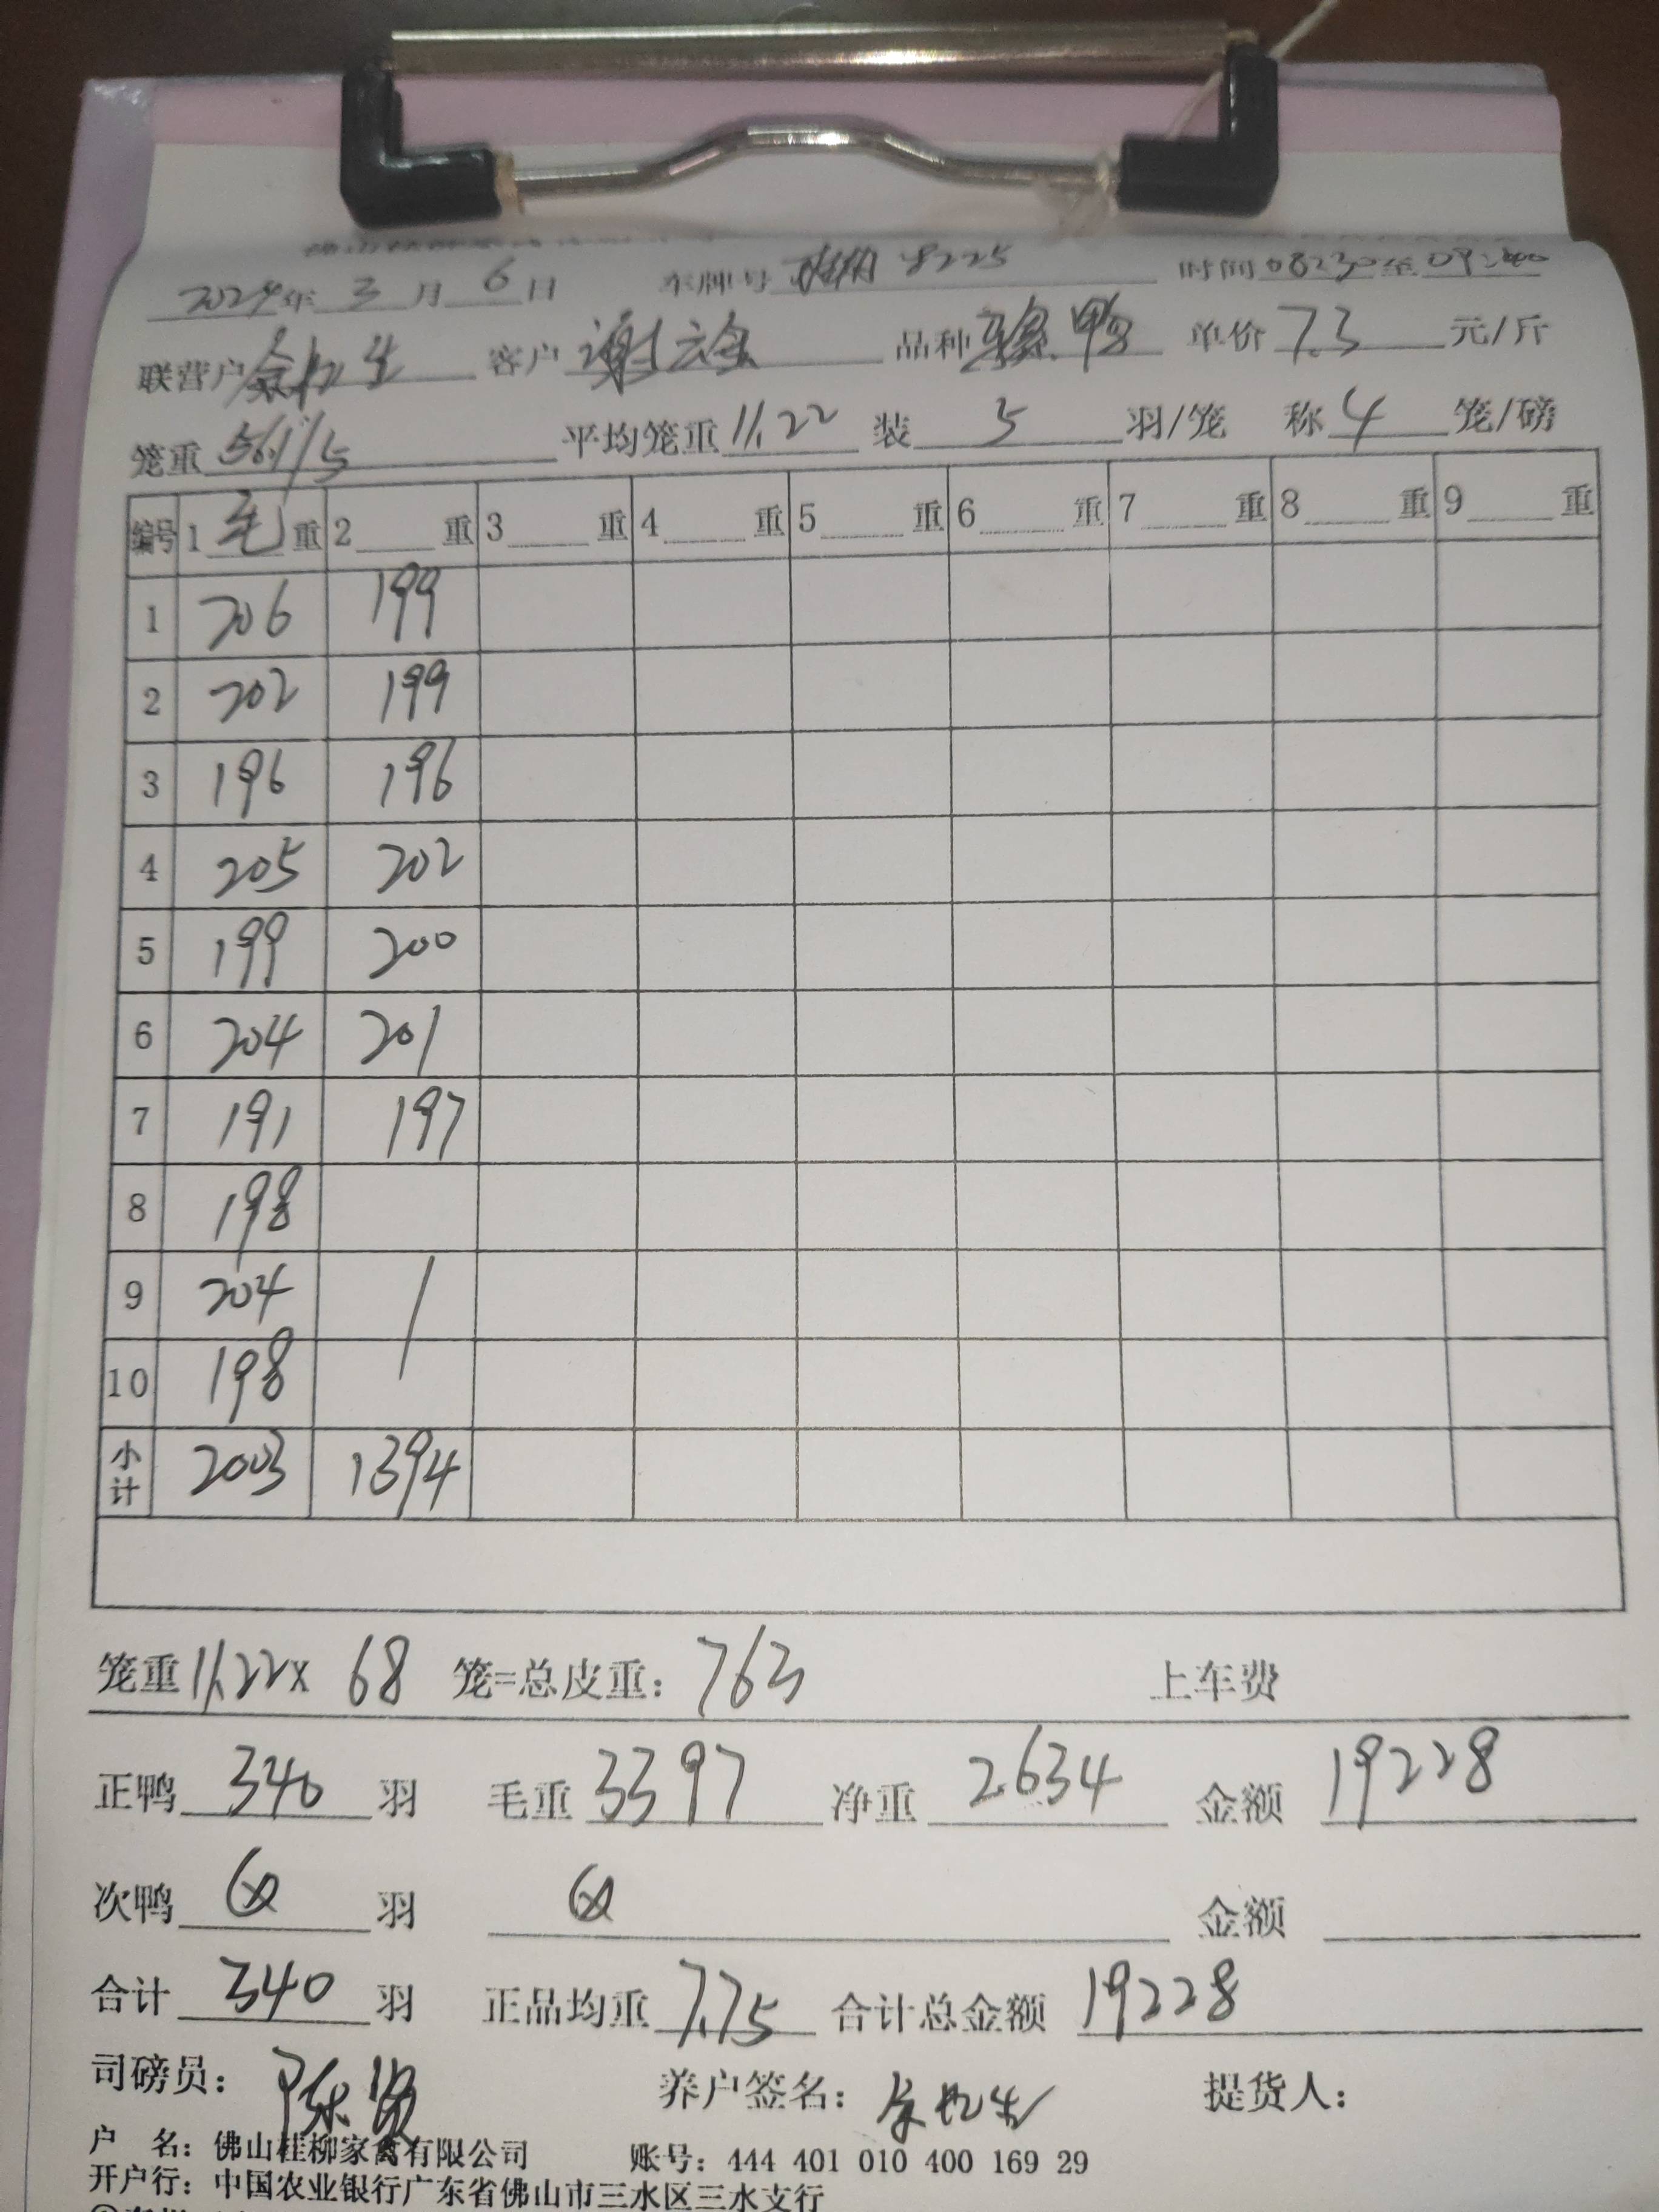 2024年 3 月 6 日 车牌号 8225 时间 08:30 至 09:40
联营户 余加生 客户 谢六金 品种 骡鸭 单价 7.3 元/斤
笼重 56.1/5 平均笼重 11.22 装 5 羽/笼 称 4 笼/磅
编号 1 毛 重 2 重 3 重 4 重 5 重 6 重 7 重 8 重 9 重
1 206 199
2 202 199
3 196 196
4 205 202
5 199 200
6 204 201
7 191 197
8 198
9 204 /
10 198
小计 2003 1394
笼重 11.22 X 68 笼=总皮重: 763 上车费
正鸭 340 羽 毛重 3397 净重 2634 金额 19228
次鸭 羽 金额
合计 340 羽 正品均重 7.75 合计总金额 19228
司磅员: 陈 养户签名: 提货人:
户 名: 佛山桂柳家禽有限公司 账号: 444 401 010 400 169 29
开户行: 中国农业银行广东省佛山市三水区三水支行